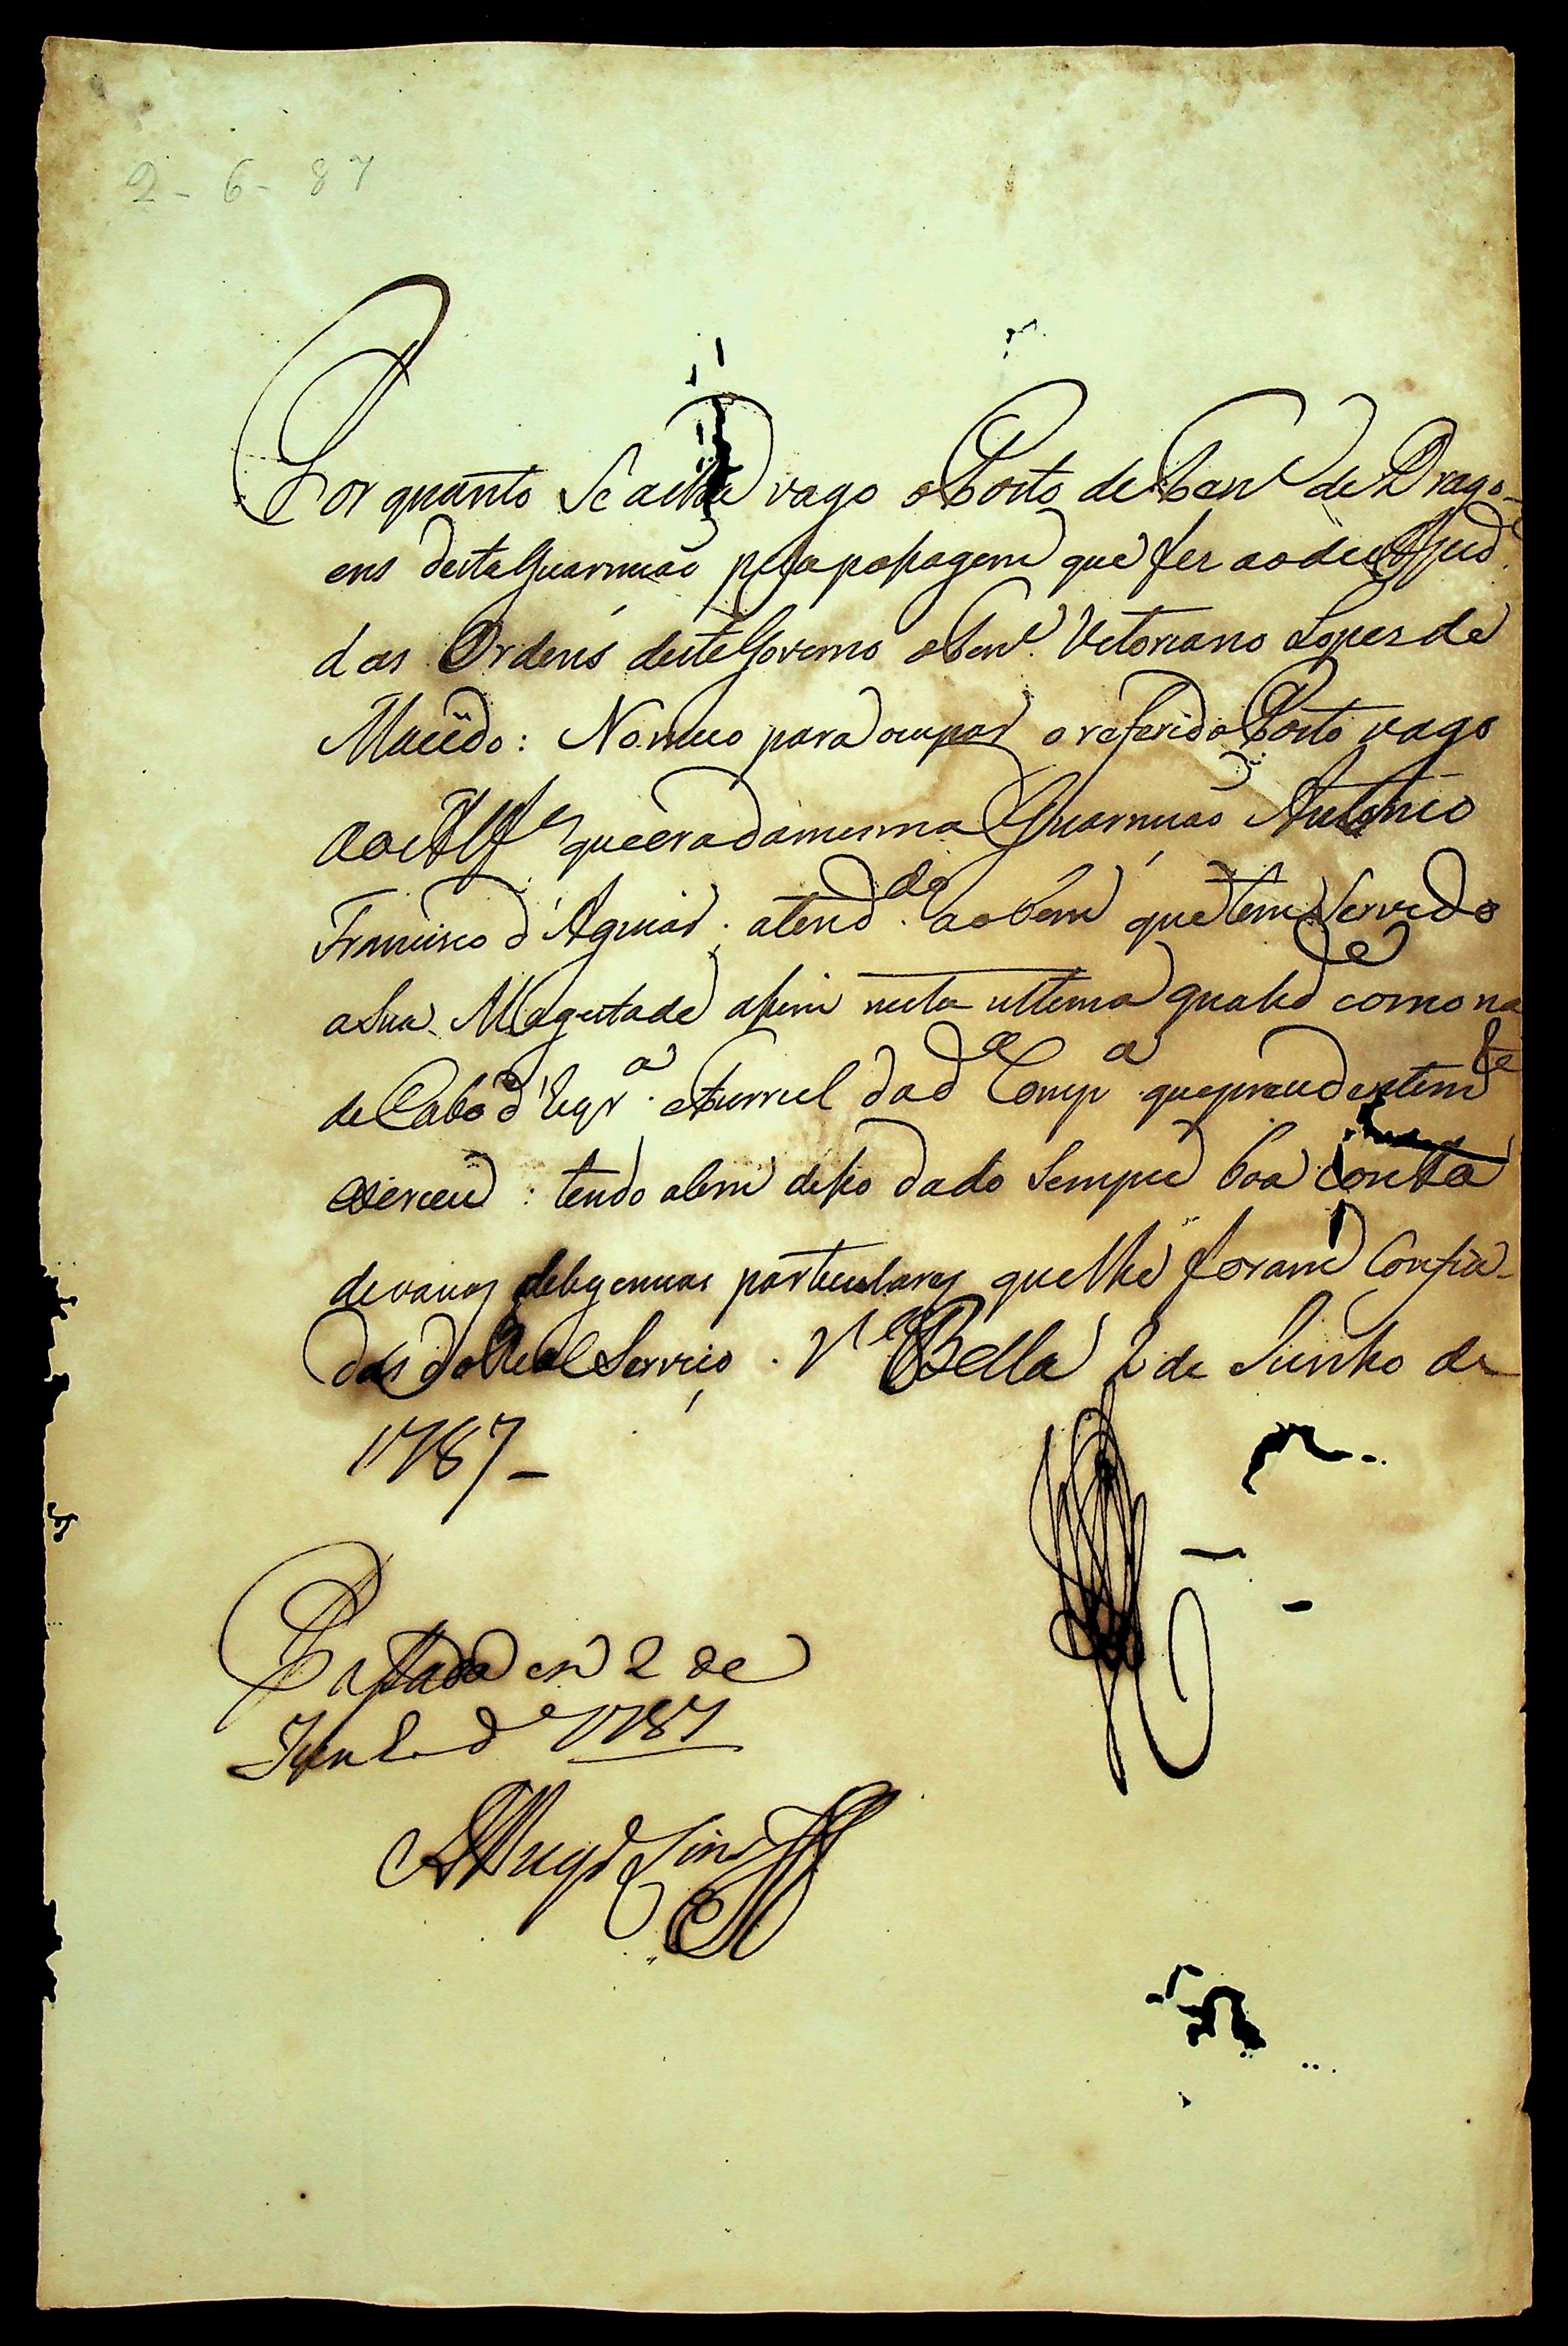 2-6-87
Por quanto Se acha vago o Posto de Ten.e de Drago-
ens desta Guarnição pela passagem que fez ao de Ajud.e
das Ordens deste Governo o Ten.e Vetoriano Lopes de
Macedo: Nomeo para ocupar o referido Posto vago
ao Alf.es que era da mesma Guarnição Antonio
Francisco d'Aguiar; atend.do ao bem que tem Servido
a Sua Magestade assim nesta ultima qualid.e como na
de Cabo d'Esqr.a e Furriel da d.a Comp.a que precedentem.te
exerceu: tendo alem disso dado Sempre boa conta
de varias deligencias particulares que lhe foram Confia-
das do Real Serviço. V.a Bella 2 de Junho de
1787_
Passada em 2 de
Junh. de 1787